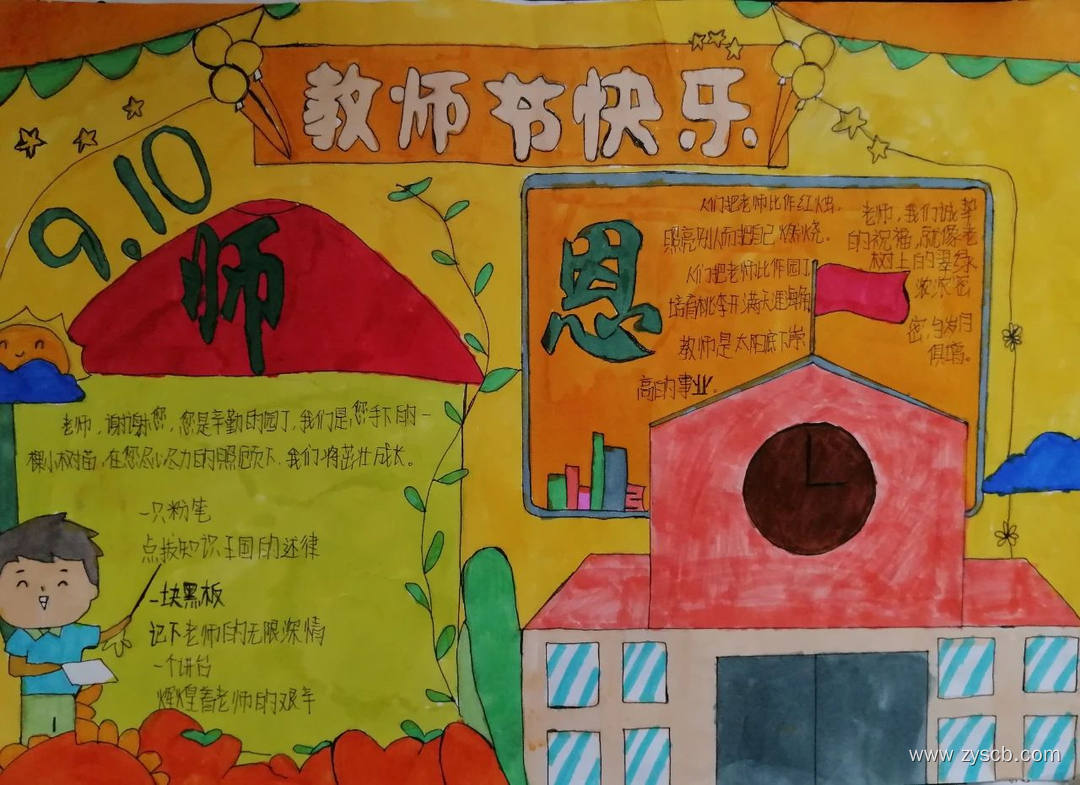 教师节快乐
9.10
师
恩
老师，谢谢您，您是辛勤的园丁，我们是您手下的一
棵小树苗，在您尽心尽力的照顾下，我们将茁壮成长。
一只粉笔
点拨知识王国的
一块黑板
记下老师的无限深情
一个讲台
辉煌着老师的艰辛
人们把老师比作红烛，
照亮别人而把自己燃烧。
人们把老师比作园丁
培育桃李开满天涯海角
教师是太阳底下崇
高的事业。
老师，我们诚挚
的祝福，就像老
树上的翠绿
浓浓密
密，与岁月
俱增。
www.zyscb.com